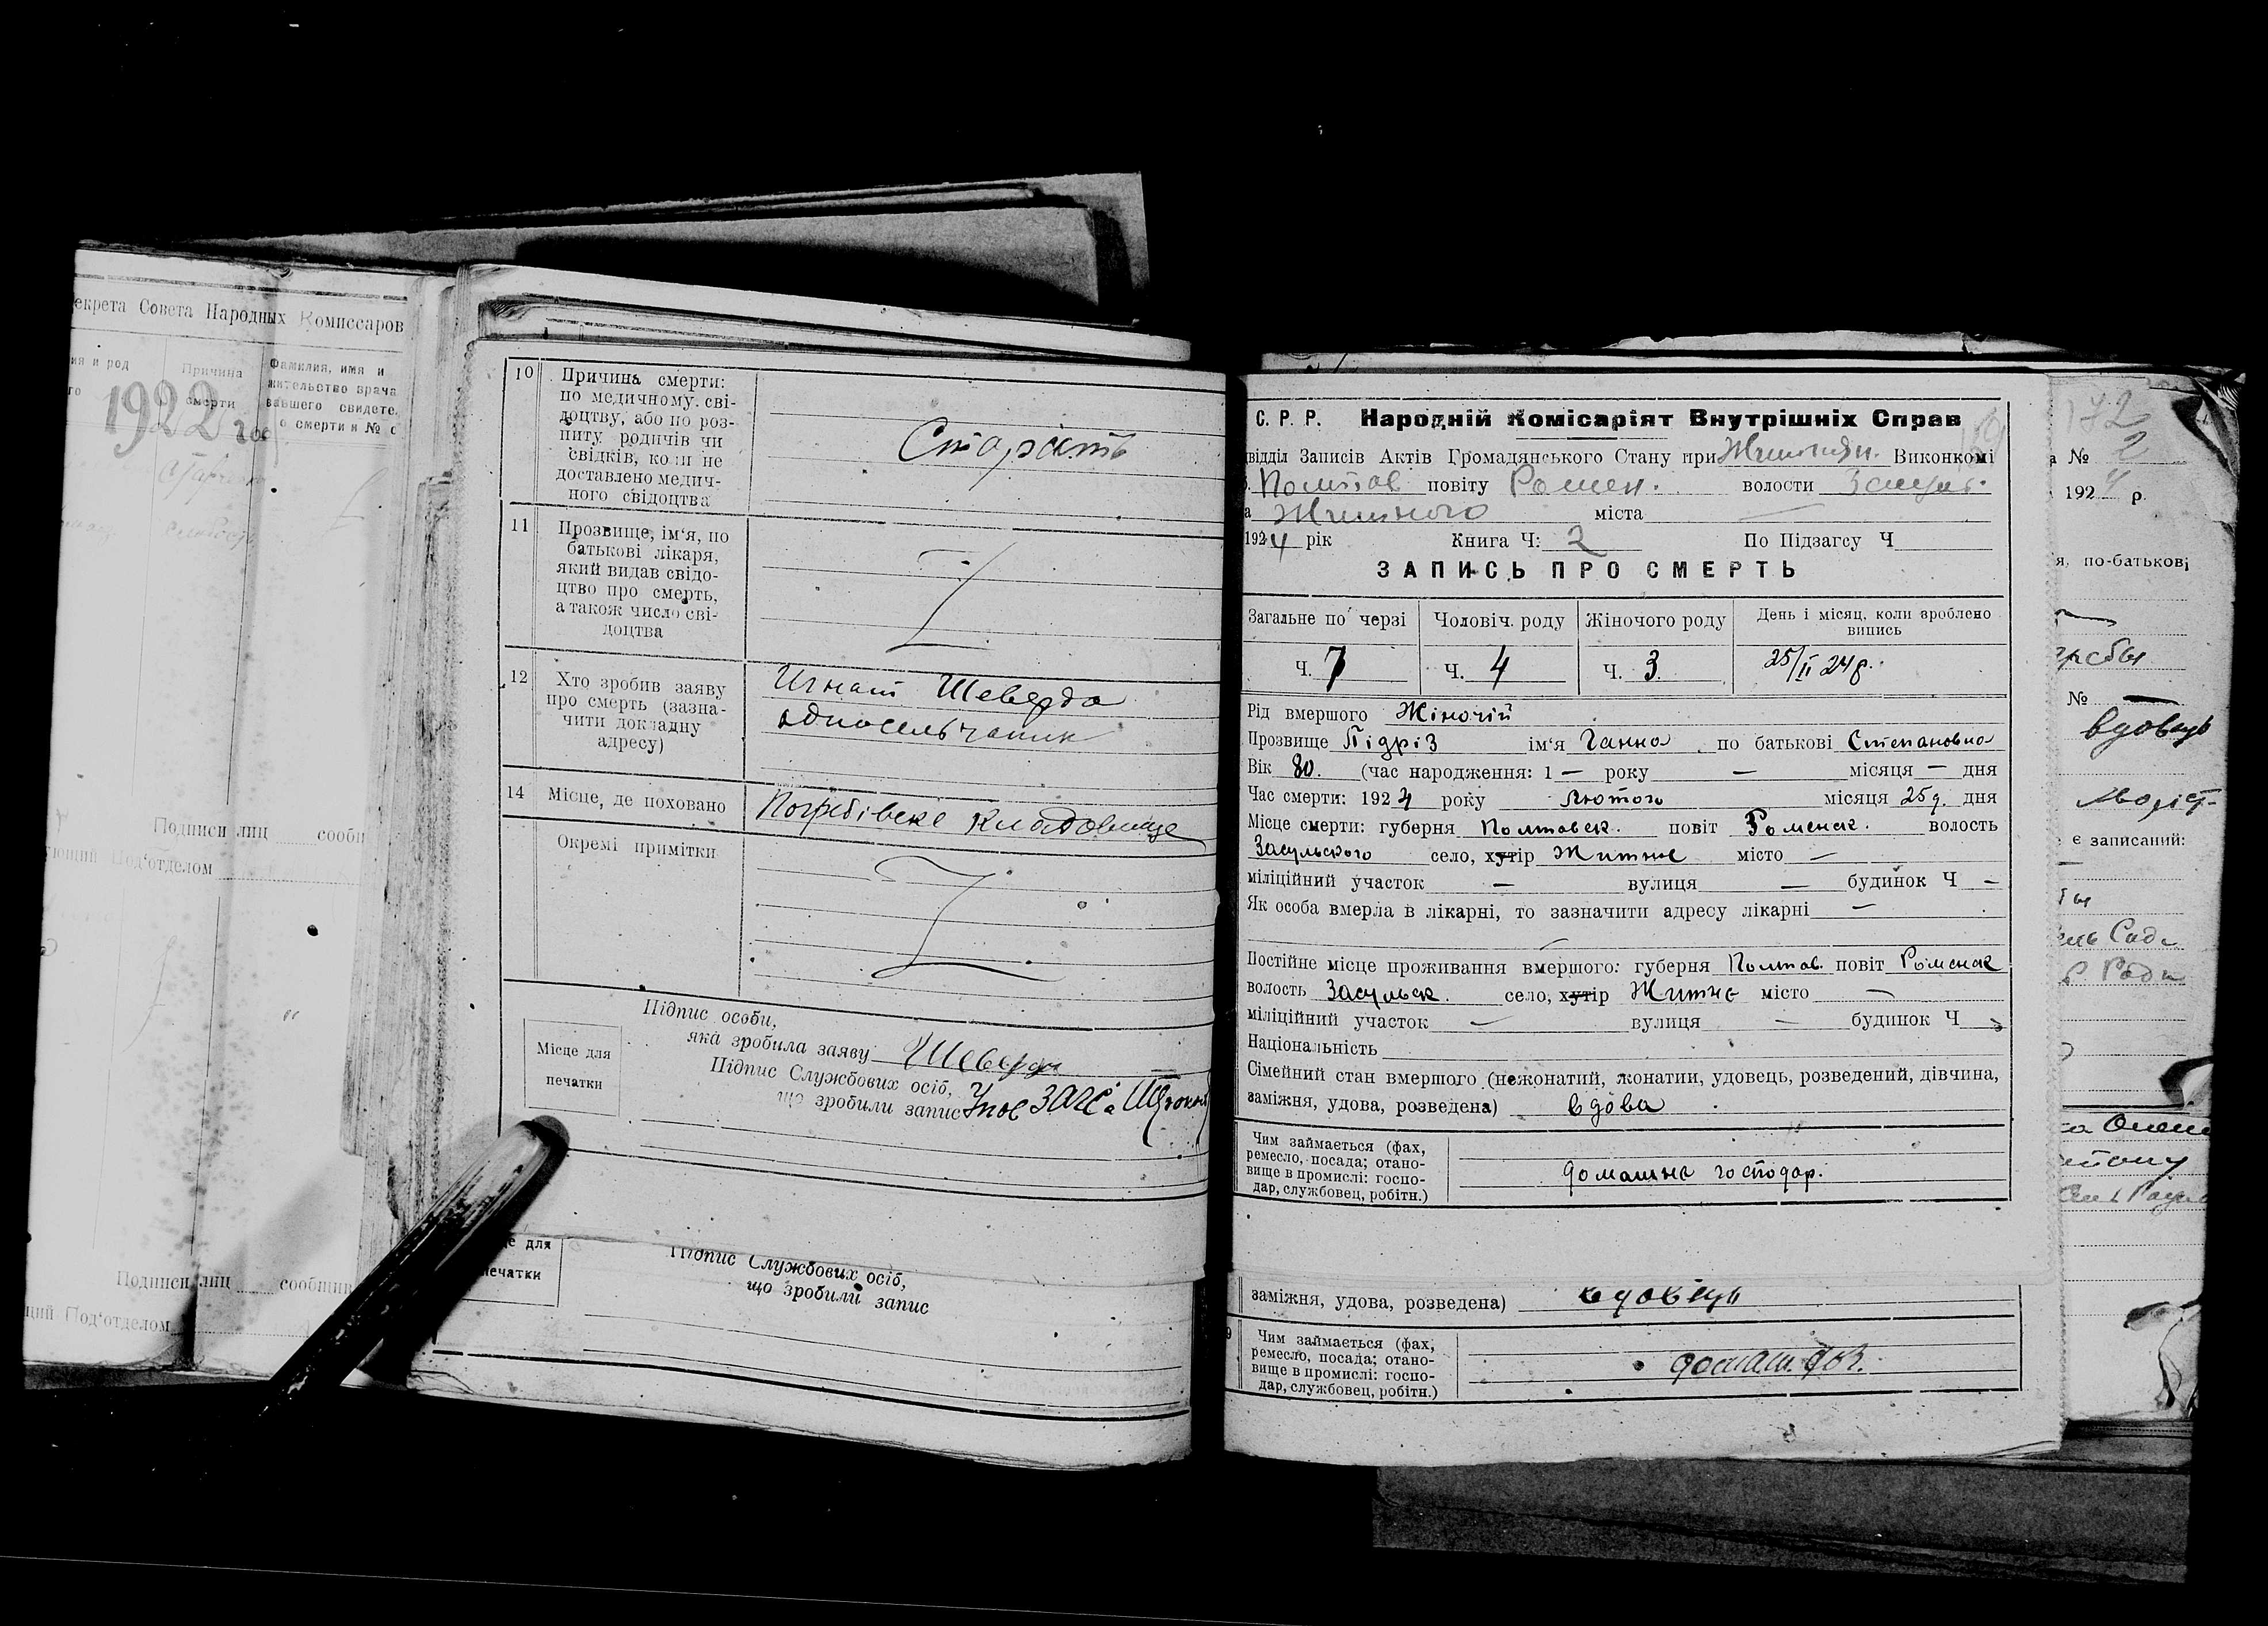 екрета Совета Народных Комиссаров
ия и род
го
Причина
смерти
Фамилия, имя и
жительство врача
вавшего свидете.
о смерти и № с
1922 год
Подписи лиц сообщ
ующий Под‘отделом
Подписи лиц сообщив
щий Под‘отделом
10 Причина смерти:
по медичному. сві-
доцтву, або по роз-
питу родичів чи
свідків, коли не
доставлено медич-
ного свідоцтва
Старість
11 Прозвище, ім‘я, по
батькові лікаря,
який видав свідо-
цтво про смерть,
а також число сві-
доцтва
12 Хто зробив заяву
про смерть (зазна-
чити докладну
адресу)
Игнат Шеверда
односельчанин
14 Місце, де поховано Погребівске кладовище
Окремі примітки
Підпис особи,
яка зробила заяву Шеверда
Місце для
печатки
Підпис Службових осіб,
що зробили запис
це для
печатки
Підпис Службових осіб,
що зробили запис
С. Р. Р. Народній Комісаріят Внутрішніх Справ
відділ Записів Актів Громадянського Стану при Житнян. Виконкомі
Полтов повіту Ромен. волости Засул.
а Житного міста —
1924 рік Книга Ч: 2 По Підзагсу Ч
ЗАПИСЬ ПРО СМЕРТЬ
Загальне по черзі Чоловіч. роду Жіночого роду День і місяц, коли зроблено
випись
Ч. 7 Ч. 4 Ч. 3 25/II 24 р.
Рід вмершого Жіночій
Прозвище Підріз ім‘я Ганна по батькові Степановна
Вік 80. (час народження: 1 — року — місяця — дня
Час смерти: 1924 року Лютого місяця 25 д. дня
Місце смерти: губерня Полтавск. повіт Роменск. волость
Засульского село, хутір Житне місто —
міліційний участок — вулиця — будинок Ч —
Як особа вмерла в лікарні, то зазначити адресу лікарні —
Постійне місце проживання вмершого: губерня Полтав. повіт Роменск
волость Засульск. село, хутір Житнє місто —
міліційний участок — вулиця — будинок Ч
Національність
Сімейний стан вмершого (нежонатий, жонатий, удовець, розведений, дівчина,
заміжня, удова, розведена) вдова
Чим займається (фах,
ремесло, посада; стано-
вище в промислі: госпо-
дар, службовец, робітн.)
домашнє господар.
заміжня, удова, розведена) вдовець
9 Чим займається (фах,
ремесло, посада; стано-
вище в промислі: госпо-
дар, службовец, робітн.)
172
а № 2
1924 р.
я, по-батькові
№ —
вдовець
є записаний: